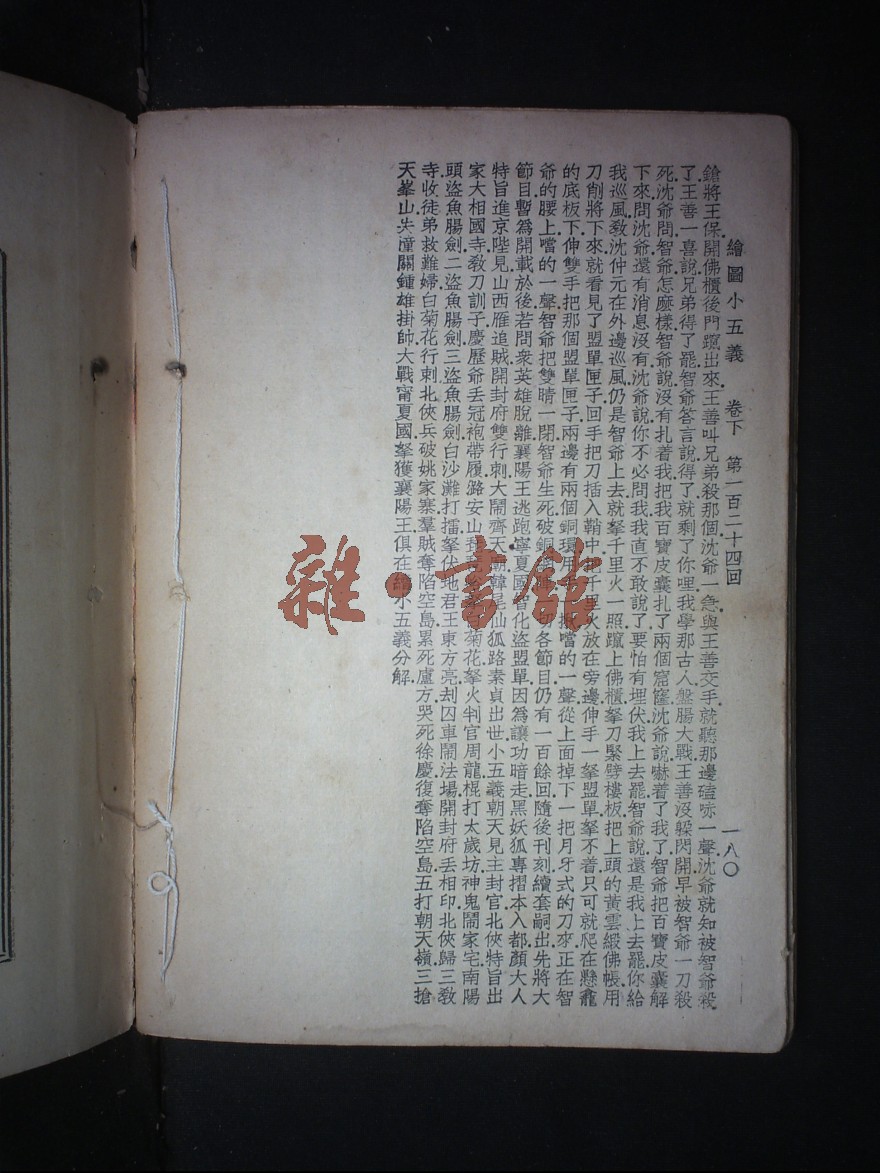 繪圖小五義 卷下 第一百二十四回 一八〇
鎗將王保開佛櫃後門躥出來.王善叫兄弟殺那個.沈爺一急與王善交手.就聽那邊磕哧一聲.沈爺就知被智爺殺
了.王善一喜說.兄弟得了罷.智爺答言說得了.就剩了你哩.我學那古人盤腸大戰.王善沒躲閃開早被智爺一刀殺
死.沈爺問智爺怎麽樣.智爺說沒有扎着我.把我百寶皮囊扎了兩個窟窿.沈爺說嚇着了我了.智爺把百寶皮囊解
下來.問沈爺還有消息沒有.沈爺說.你不必問我.我直不敢說了.要怕有埋伏我上去罷.智爺說.還是我上去罷.你給
我巡風.教沈仲元在外邊巡風.仍是智爺上去.就拏千里火一照.躥上佛櫃.拏刀緊劈樓板.把上頭的黃雲緞佛帳.用
刀削將下來.就看見了盟單匣子.回手把刀插入鞘中.把千里火放在旁邊.伸手一拏盟單拏不着.只可就爬在懸龕
的底板下.伸雙手把那個盟單匣子兩邊有兩個銅環.用手一揪.噹的一聲.從上面掉下一把月牙式的刀來.正在智
爺的腰上.噹的一聲.智爺把雙睛一閉.智爺生死.破銅網各節目.仍有一百餘回.隨後刊刻續套嗣出.先將大
節目暫爲開載於後.若問衆英雄脫離襄陽.王逃跑寧夏國.智化盜盟單.因爲讓功暗走黑妖狐.專摺本入都.顏大人
特旨進京陛見.山西雁追賊開封府.雙行刺大鬧齊天廟.韓尾仙狐路素貞出世.小五義朝天見主封官.北俠特旨出
家大相國寺.教刀訓子.慶歷爺丟冠袍帶履.潞安山琵琶峪拏白菊花.拏火判官周龍.棍打太歲坊.神鬼鬧家宅.南陽
頭盜魚腸劍.二盜魚腸劍.三盜魚腸劍.白沙灘打擂.拏伏地君王東方亮.刦囚車.鬧法場.開封府丟相印.北俠歸三教
寺收徒弟.救難婦.白菊花行刺.北俠兵破姚家寨.羣賊奪陷空島.累死盧方.哭死徐慶.復奪陷空島.五打朝天嶺.三搶
天峯山.失潼關.鍾雄掛帥.大戰甯夏國.拏獲襄陽王.俱在續小五義分解.
雜·書館